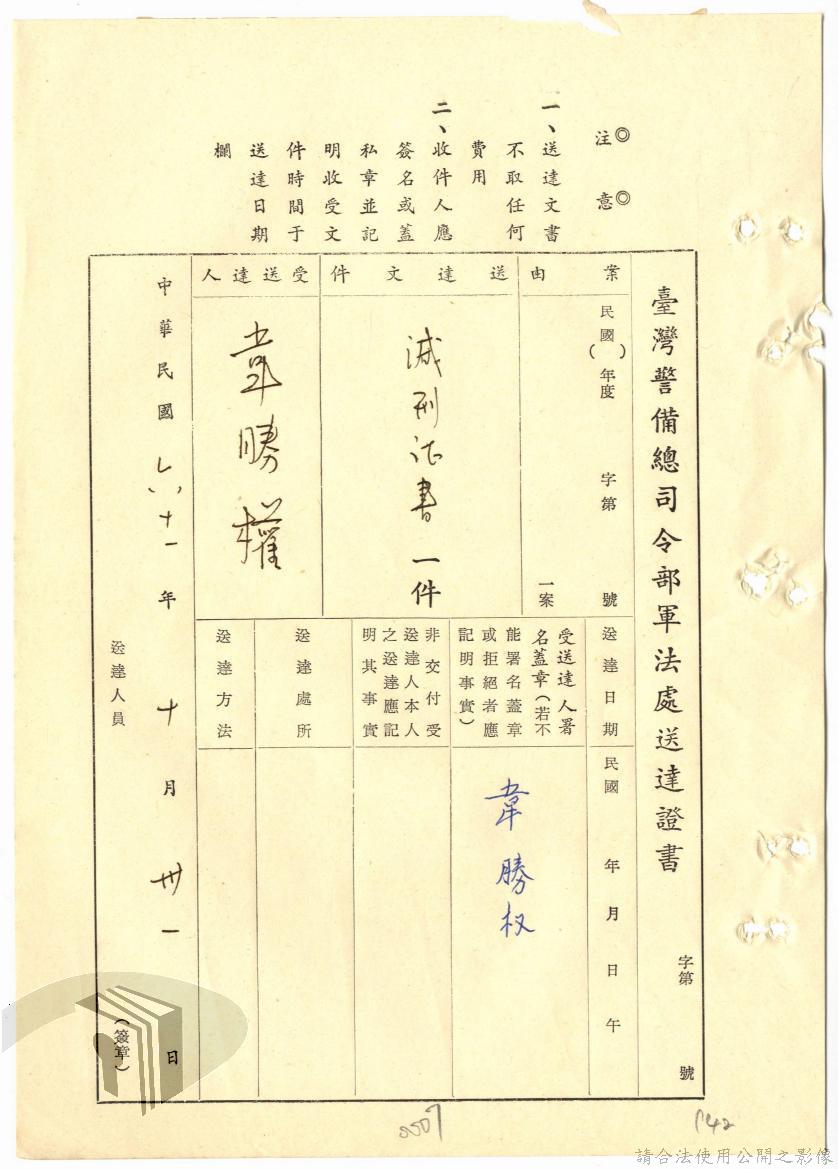 臺灣警備總司令部軍法處送達證書
字第 號
案由
民國( )年度 字第 號
一案
送達文件
減刑证書一件
受送達人
韋勝權
送達日期
民國 年 月 日 午
受送達人署名蓋章(若不能署名蓋章或拒絕者應記明事實)
韋勝权
非交付受送達人本人之送達應記明其事實
送達處所
送達方法
中華民國六十一年十月卅一日
送達人員 (簽章)
◎注意◎
一、送達文書不取任何費用
二、收件人應簽名或蓋私章並記明收受文件時間于送達日期欄
0007
142
請合法使用公開之影像